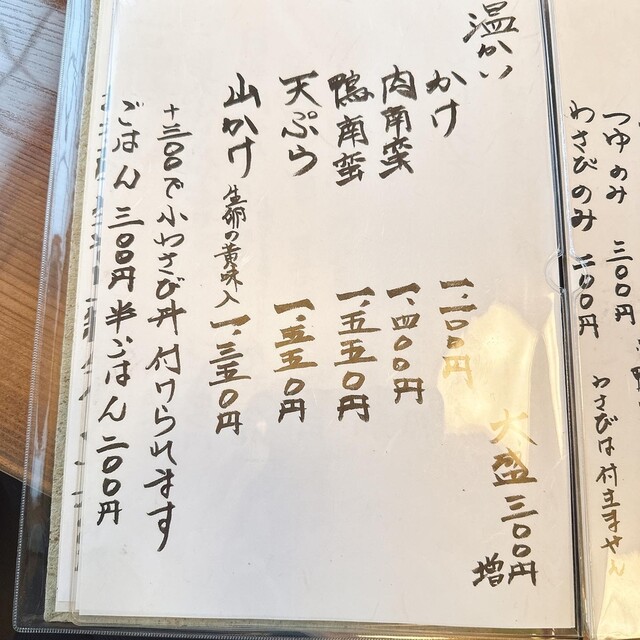 つゆのみ 三〇〇円
わさびのみ 二〇〇円
わさびは付きません
温かい
かけ 一、一〇〇円
肉南蛮 一、四〇〇円
鴨南蛮 一、五五〇円
天ぷら 一、五五〇円
山かけ 生卵の黄味入 一、三五〇円
大盛三〇〇円増
+三〇〇で小わさび丼付けられます
ごはん 三〇〇円 半ごはん 二〇〇円